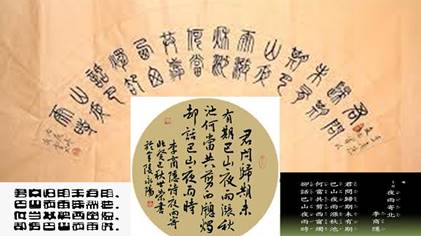 君問
歸期
未有
期巴
山夜
雨漲
秋池
何當
共剪
西窗
燭却
話巴
山夜
雨時
君问歸期未
有期巴山夜雨漲秋
池何當共剪西窗燭
却話巴山夜雨時
李商隱詩夜雨寄
北癸巳秋世榮書
君问归期未有期，
巴山夜雨涨秋池。
何当共剪西窗烛，
却话巴山夜雨时。
夜雨寄北
李商隱
君問歸期未有期
巴山夜雨漲秋池
何當共剪西窗燭
卻話巴山夜雨時